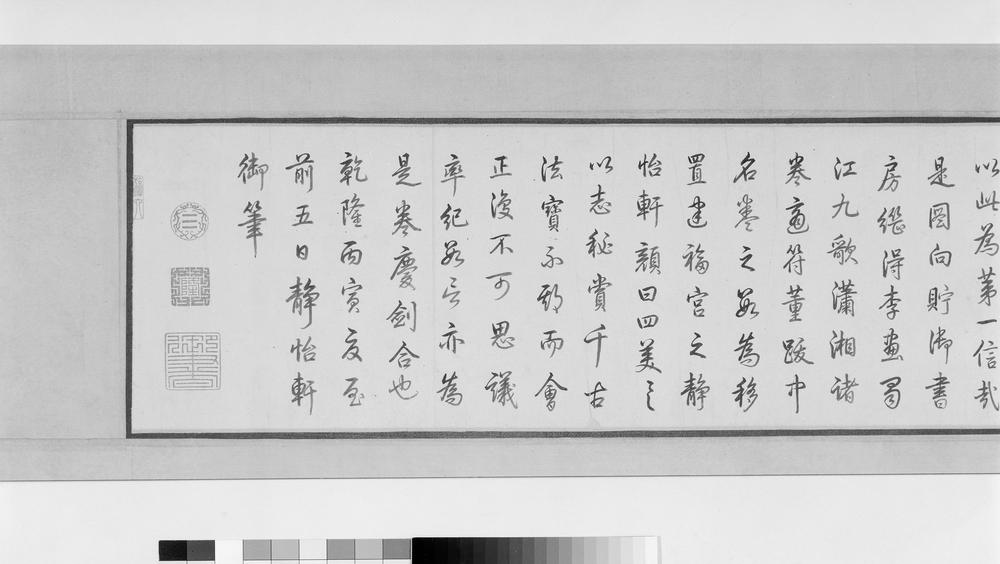 以此為第一信哉
是圖向貯御書
房繼得李畫蜀
江九歌瀟湘諸
卷適符董跋中
名卷之數為移
置建福宮之靜
怡軒顏曰四美具
以志秘賞千古
法寶不期而會
正復不可思議
率紀數言亦為
是卷慶劍合也
乾隆丙寅夏至
前五日靜怡軒
御筆